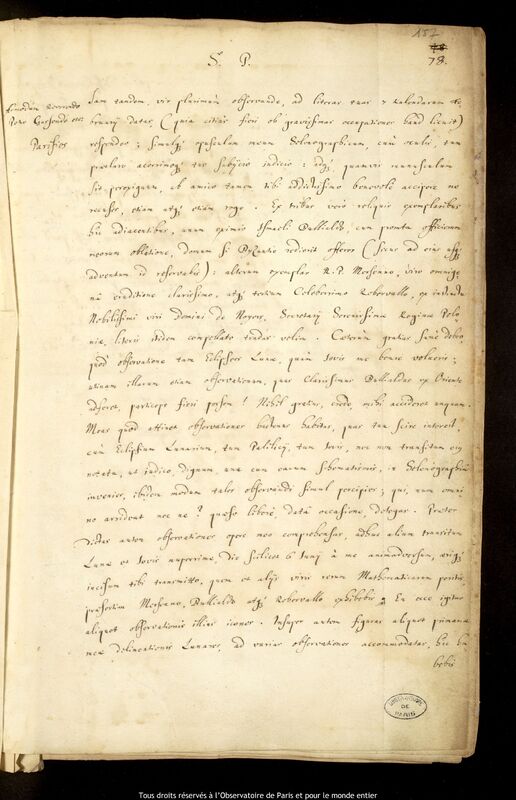 157
78.
S. P.
Clarissimo
Petro Gassendo
Parisios
Iam tandem, vir plurimum observande, ad literas tuas 7 Kalendarum
datas, (quia citius fieri ob gravissimas occupationes haud licuit)
respondeo; simulq; opusculum meum Selenographicum, cum tuum
acerrimoq; tuo subjicio judicio: atq; quamvis munusculum
sit perexiguum, ab amico tamen tibi addictissimo benevole accipere ne
recuses, etiam atq; etiam rogo. Ex tribus vero reliquis exemplaribus
hic adjacentibus, unum eximio Ismaeli Bullialdo, cum prompta officiorum
meorum oblatione, donum si Byzantio redierit offeres (sicuti ad ejus usq;
adventum id reservabis): alterum exemplar R. P. Mersenno, viro omnige-
na eruditione clarissimo, atq; tertium Celeberrimo Robervallo, ex
Nobilissimi viri Domini de Noyers, Secretarij Serenissimae Reginae Polo-
niae, literis itidem compellato tradas velim. Caeterum gratias sane debeo
quod observationes tam Eclipseos Lunae, quam Iovis me
utinam illarum etiam observationum, quas Clarissimus Bullialdus ex Oriente
adferet, particeps fieri possem! Nihil gratius, credo, mihi accideret unquam.
Meas quod attinet observationes hactenus habitas, quas tua scire interest,
cum Eclipsium Lunarium, tum Palilicij, tum Iovis, nec non transitum
notatu, ut judico, dignum, una cum earum Schematismis, in Selenographia
invenies, ibidem modum tales observandi simul percipies; qui, num omni-
no arrideat nec ne? quaeso libere, data occasione, detegas. Praeter
dictas autem observationes opere meo comprehensas, adhuc alium transitum
Lunae et Iovis nuperrime, die scilicet 6 Junij à me animadversum,
incisum tibi transmitto, quem et alijs viris rerum Mathematicarum peritis,
praesertim Mersenno, Bullialdo atq; Robervallo exhibebis. En ecce igitur
aliquot observationis illius icones. Insuper autem figuras aliquot primarias
meae delineationis Lunares, ad varias observationes accommodatas, hic ha-
bebis
OBSERVATOIRE DE PARIS
Tous droits réservés à l'Observatoire de Paris et pour le monde entier